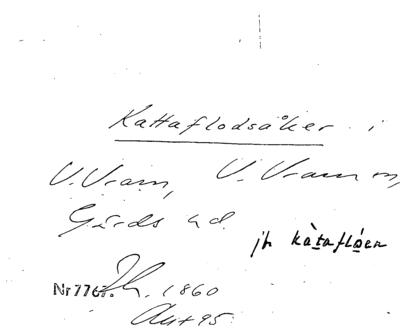 Kattaflodsåker i
V. Vram, V. Vram sn,
Gärds hd.
jh kàtaflóen
Nr 776. Jh. 1860
Akt 95